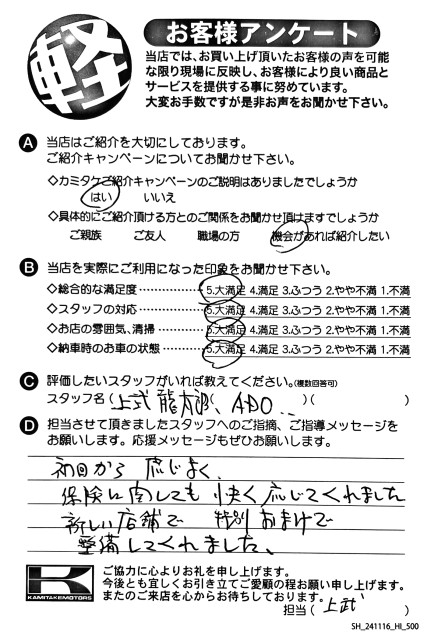 軽
お客様アンケート
当店では、お買い上げ頂いたお客様の声を可能
な限り現場に反映し、お客様により良い商品と
サービスを提供する事に努めています。
大変お手数ですが是非お声をお聞かせ下さい。
A 当店はご紹介を大切にしております。
ご紹介キャンペーンについてお聞かせ下さい。
◇カミタケご紹介キャンペーンのご説明はありましたでしょうか
はい いいえ
◇具体的にご紹介頂ける方とのご関係をお聞かせ頂けますでしょうか
ご親族 ご友人 職場の方 機会があれば紹介したい
B 当店を実際にご利用になった印象をお聞かせ下さい。
◇総合的な満足度 5.大満足 4.満足 3.ふつう 2.やや不満 1.不満
◇スタッフの対応 5.大満足 4.満足 3.ふつう 2.やや不満 1.不満
◇お店の雰囲気、清掃 5.大満足 4.満足 3.ふつう 2.やや不満 1.不満
◇納車時のお車の状態 5.大満足 4.満足 3.ふつう 2.やや不満 1.不満
C 評価したいスタッフがいれば教えてください。(複数回答可)
スタッフ名 ( 上武 龍太郎、 ADO )( )
D 担当させて頂きましたスタッフへのご指摘、ご指導メッセージを
お願いします。応援メッセージもぜひお願いします。
初回から 感じよく、
保険に関しても 快く 応じてくれました
新しい店舗で 特別 おまけで
整備してくれました、
K
KAMITAKEMOTORS
ご協力に心よりお礼を申し上げます。
今後とも宜しくお引き立てご愛顧の程お願い申し上げます。
またのご来店を心からお待ちしております。
担当 ( 上武 )
SH_241116_HI_500